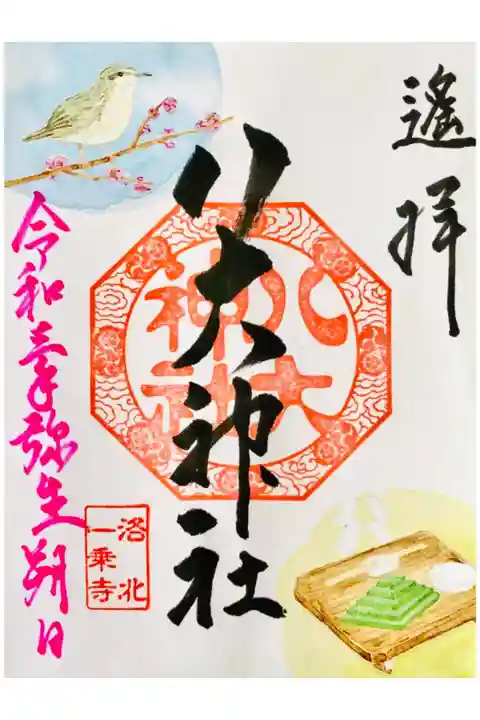 遙拝
八大神社
八大
神社
洛北
一乗寺
令和参年弥生朔日